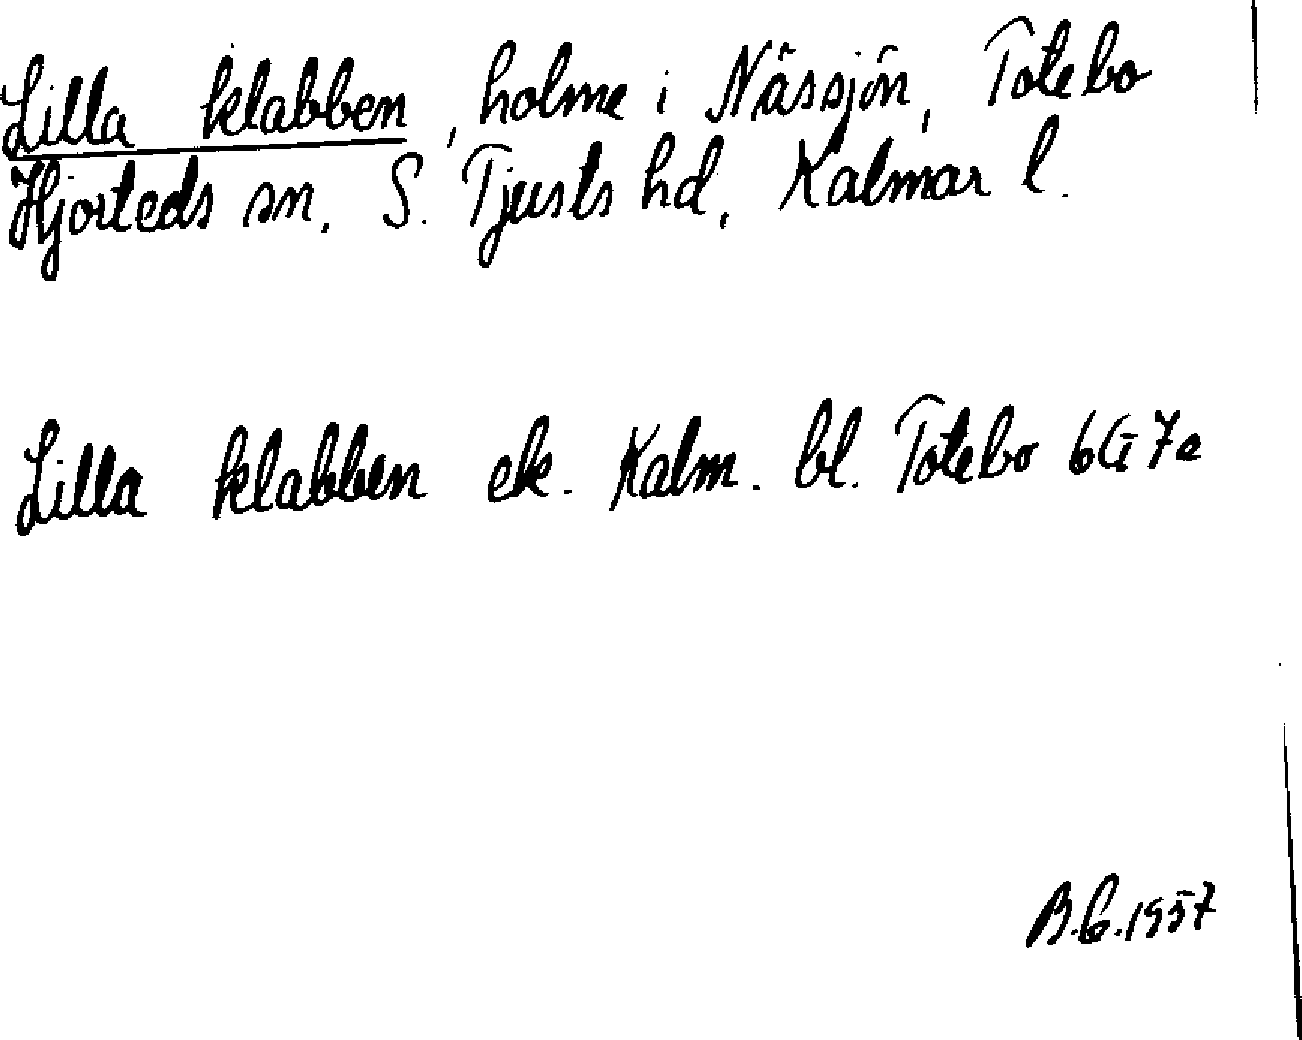 Lilla klabben, holme i Nässjön, Totebo
Hjorteds sn. S. Tjusts hd, Kalmar l.
Lilla klabben ek. Kalm. bl. Totebo 6G 7e
1957